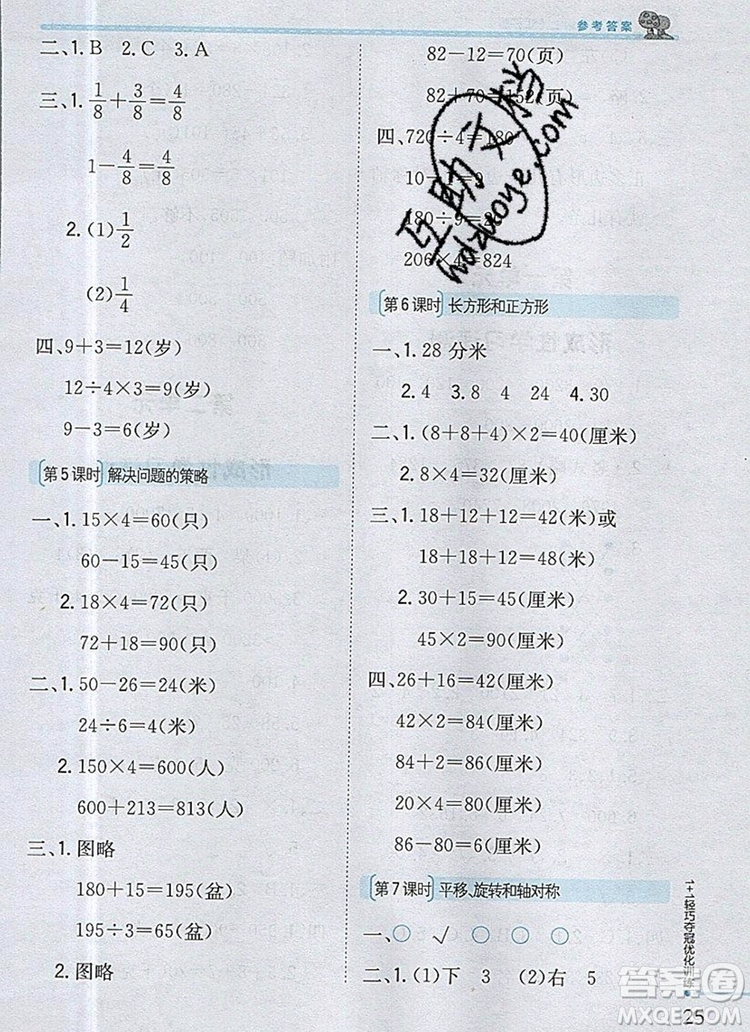 参考答案
二、1. B 2. C 3. A
三、1. 1/8+3/8=4/8
1-4/8=4/8
2. (1)1/2
(2)1/4
四、9+3=12(岁)
12÷4×3=9(岁)
9-3=6(岁)
第5课时 解决问题的策略
一、1. 15×4=60(只)
60-15=45(只)
2. 18×4=72(只)
72+18=90(只)
二、1. 50-26=24(米)
24÷6=4(米)
2. 150×4=600(人)
600+213=813(人)
三、1. 图略
180+15=195(盆)
195÷3=65(盆)
2. 图略
82-12=70(页)
82+70=152(页)
四、720÷4=180
180÷9=
206×4=824
第6课时 长方形和正方形
一、1. 28 分米
2. 4 3. 8 4 24 4. 30
二、1. (8+8+4)×2=40(厘米)
2. 8×4=32(厘米)
三、1. 18+12+12=42(米)或
18+18+12=48(米)
2. 30+15=45(厘米)
45×2=90(厘米)
四、26+16=42(厘米)
42×2=84(厘米)
84+2=86(厘米)
20×4=80(厘米)
86-80=6(厘米)
第7课时 平移、旋转和轴对称
一、○ √ ○ ○
二、1. (1)下 3 (2)右 5
1+1轻巧夺冠优化训练
25
互助文档
hdzuoye.com
答案圈
MXQE.COM